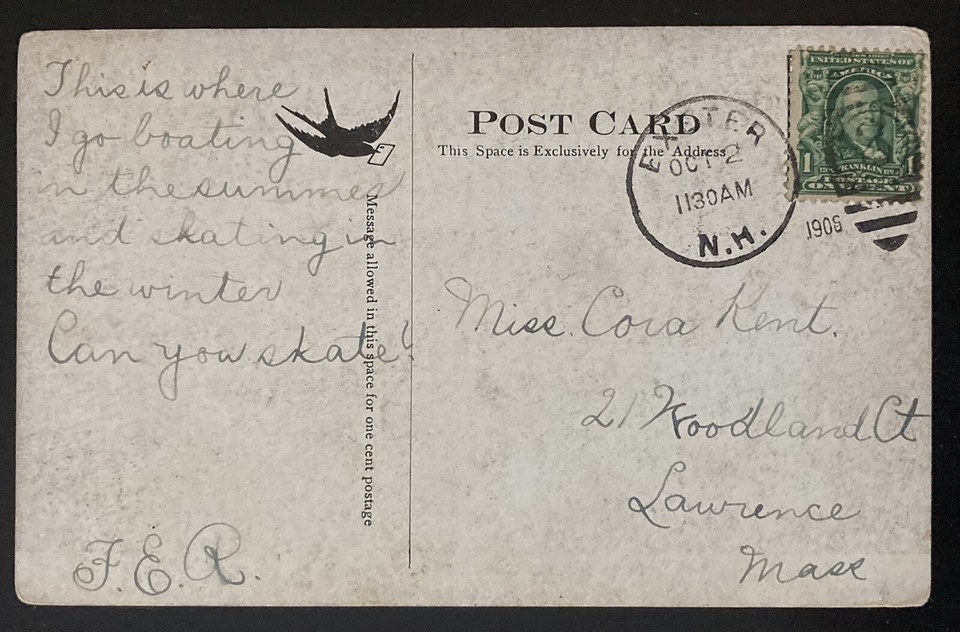 This is where
I go boating
in the summer
and skating in
the winter
Can you skate?
F.E.R.
Message allowed in this space for one cent postage
POST CARD
This Space is Exclusively for the Address
EXETER
OCT 2
1130AM
N.H.
1908
UNITED STATES OF
AMERICA
1 FRANKLIN 1
POSTAGE
ONE CENT
Miss. Cora Kent.
21 Woodland Ct
Lawrence
Mass